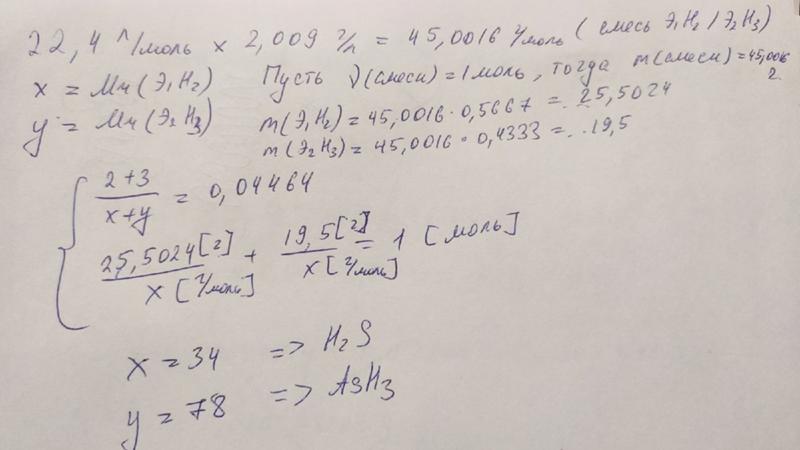 22,4 л/моль × 2,009 г/л = 45,0016 г/моль (смесь Э₁H₂ / Э₂H₃)
x = Mч(Э₁H₂) Пусть ν(смеси) = 1 моль, тогда m(смеси) = 45,0016 г
y = Mч(Э₂H₃) m(Э₁H₂) = 45,0016 · 0,5667 = .. 25,5024
m(Э₂H₃) = 45,0016 · 0,4333 = .. 19,5
2+3 / x+y = 0,04464
25,5024 [г] / x [г/моль] + 19,5 [г] / x [г/моль] = 1 [моль]
x = 34 => H₂S
y = 78 => AsH₃